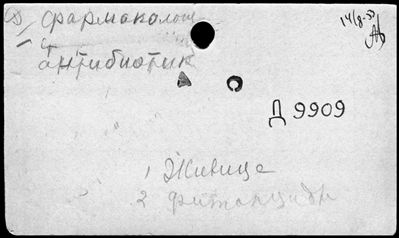 фармаколог
антибиотик
14/8-53
Д 9909
1 Живице
2 фитонциды